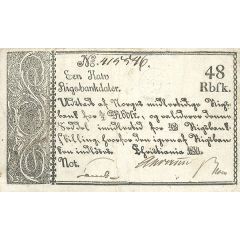 No. 415596
Een Halv
Rigsbankdaler.
48
Rbsk.
Udstedt af Norges midlertidige Rigs-
bank for ½ Rbdlr. og valideres denne
Seddel imidlertid for 48 Rigsbank-
skilling hvorfor den igjen af Rigsban-
ken indløses. Christiania 181
Not.